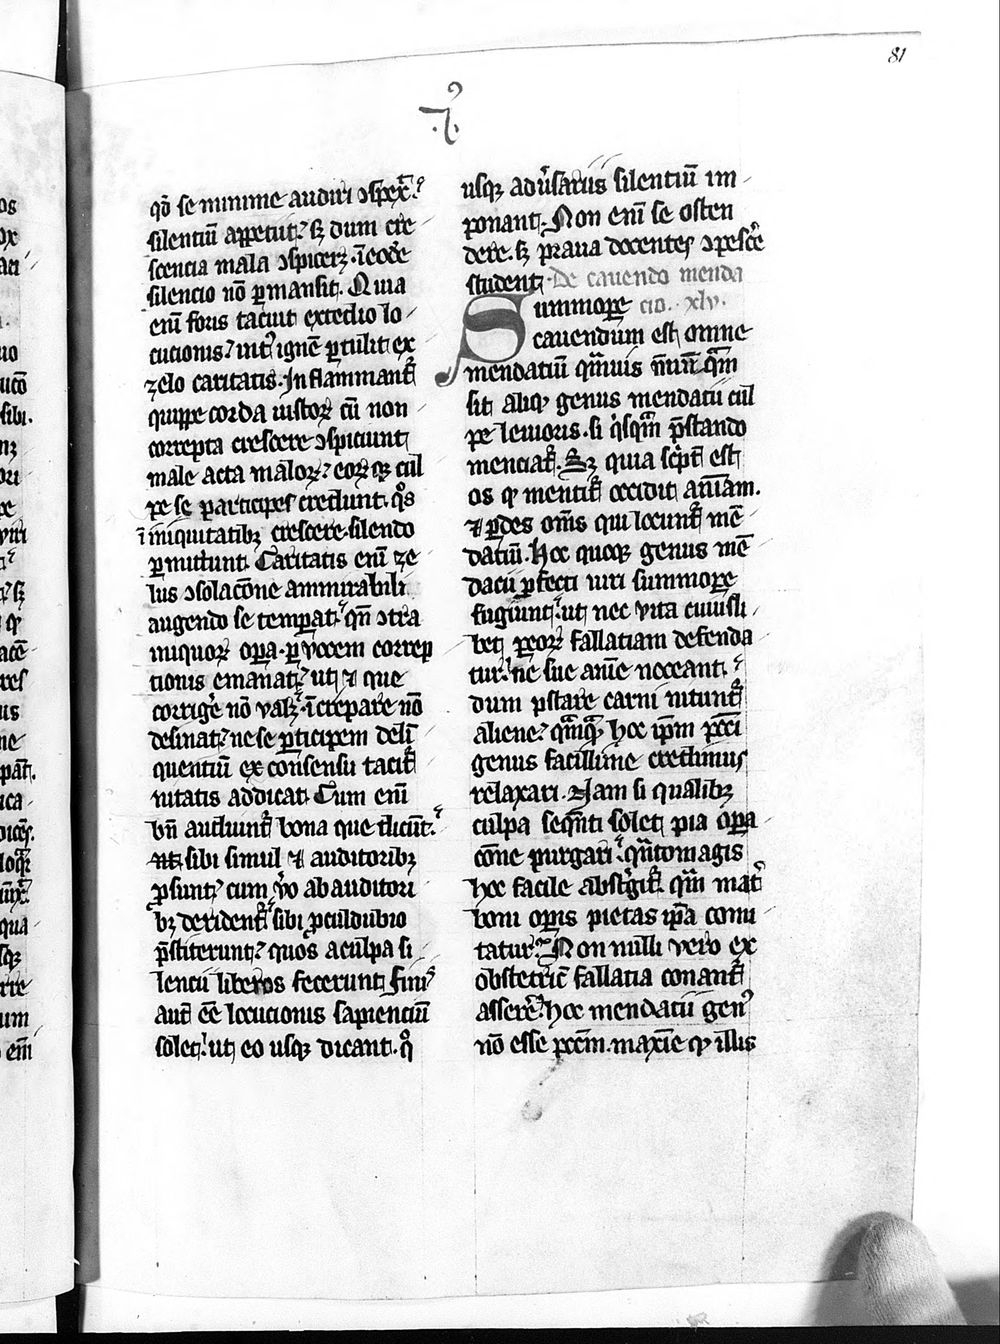 81
qd̄ se minime audiri ɔspexᷓᷣ
silentiū appetiit. sꝫ dum cre
scencia mala ɔspicerꝫ. ī eodē
silencio nō ꝑmansit. Quia
enī foris tacuit ex tedio lo
cucionis intꝰ ignē ꝑtulit ex
zelo caritatis. Inflammant᷑
quippe corda iustoꝝ cū non
correpta crescere ɔspiciunt
male acta maloꝝ. eoꝝ qꝫ cul
pe se participes credunt. qͦs
ī iniquitatibꝫ crescere silendo
ꝑmittunt. Caritatis enī ze
lus ɔsolacōne ammirabili
augendo se temꝑat. qn̄ ɔtra
iniquoꝝ oꝑa. ꝑ vocem correp
tionis emanat. ut ⁊ que
corrigere nō valꝫ. īcrepare nō
desinat. ne se ꝑticipem deli
quentiū ex consensu tacit᷑
nitatis addicat. Cum enī
bn̄ audiunt᷑ bona que dicūt.
sibi simul ⁊ auditoribꝫ
ꝓsunt. cum v̊o ab auditori
bꝫ derident᷑ sibi ꝓculdubio
p̄stiterunt. quos a culpa si
lencii liberos fecerunt. Finis
aut̄ eē locucionis sapienciū
solet. ut eo usqꝫ dicant. qͦ
usqꝫ adu̓sariis silentiū im
ponant. Non enī se osten
dere. sꝫ praua docentes ɔpescē
student. De cauendo menda
Summoꝑe cio. xlv.
cauendum est omne
mendatiū qᷓmuis nōnūqᷓm
sit aliqͦ genus mendacii cul
pe leuioris. si qͥsqᷓm p̄stando
menciat᷑. Sꝫ quia sc̓pt̄ est
os qͦ mentit᷑ occidit animam.
⁊ ꝑdes om̄s qui locunt᷑ mē
datiū. Hoc quoqꝫ genus mē
dacii ꝑfecti uiri summoꝑe
fugiunt. ut nec vita cuiusli
bet ꝑ eoꝝ fallatiam defenda
tur. ne sue anīe noceant
dum p̄stare carni nitunt᷑
aliene. qᷓmqᷓ hoc ip̄m pcc̄i
genus facillime credimus
relaxari. Nam si qualibꝫ
culpa seqn̄ti solet pia oꝑa
cōne purgari. qn̄to magis
hoc facile abstgit᷑. qᷓm mat̓
boni oꝑis pietas ip̄a comi
tatur. Non nulli vero ex
obstetric̄ fallatia conant᷑
asserere. hoc mendacii genꝰ
nō esse pcc̄m. maxīe qͦ illis